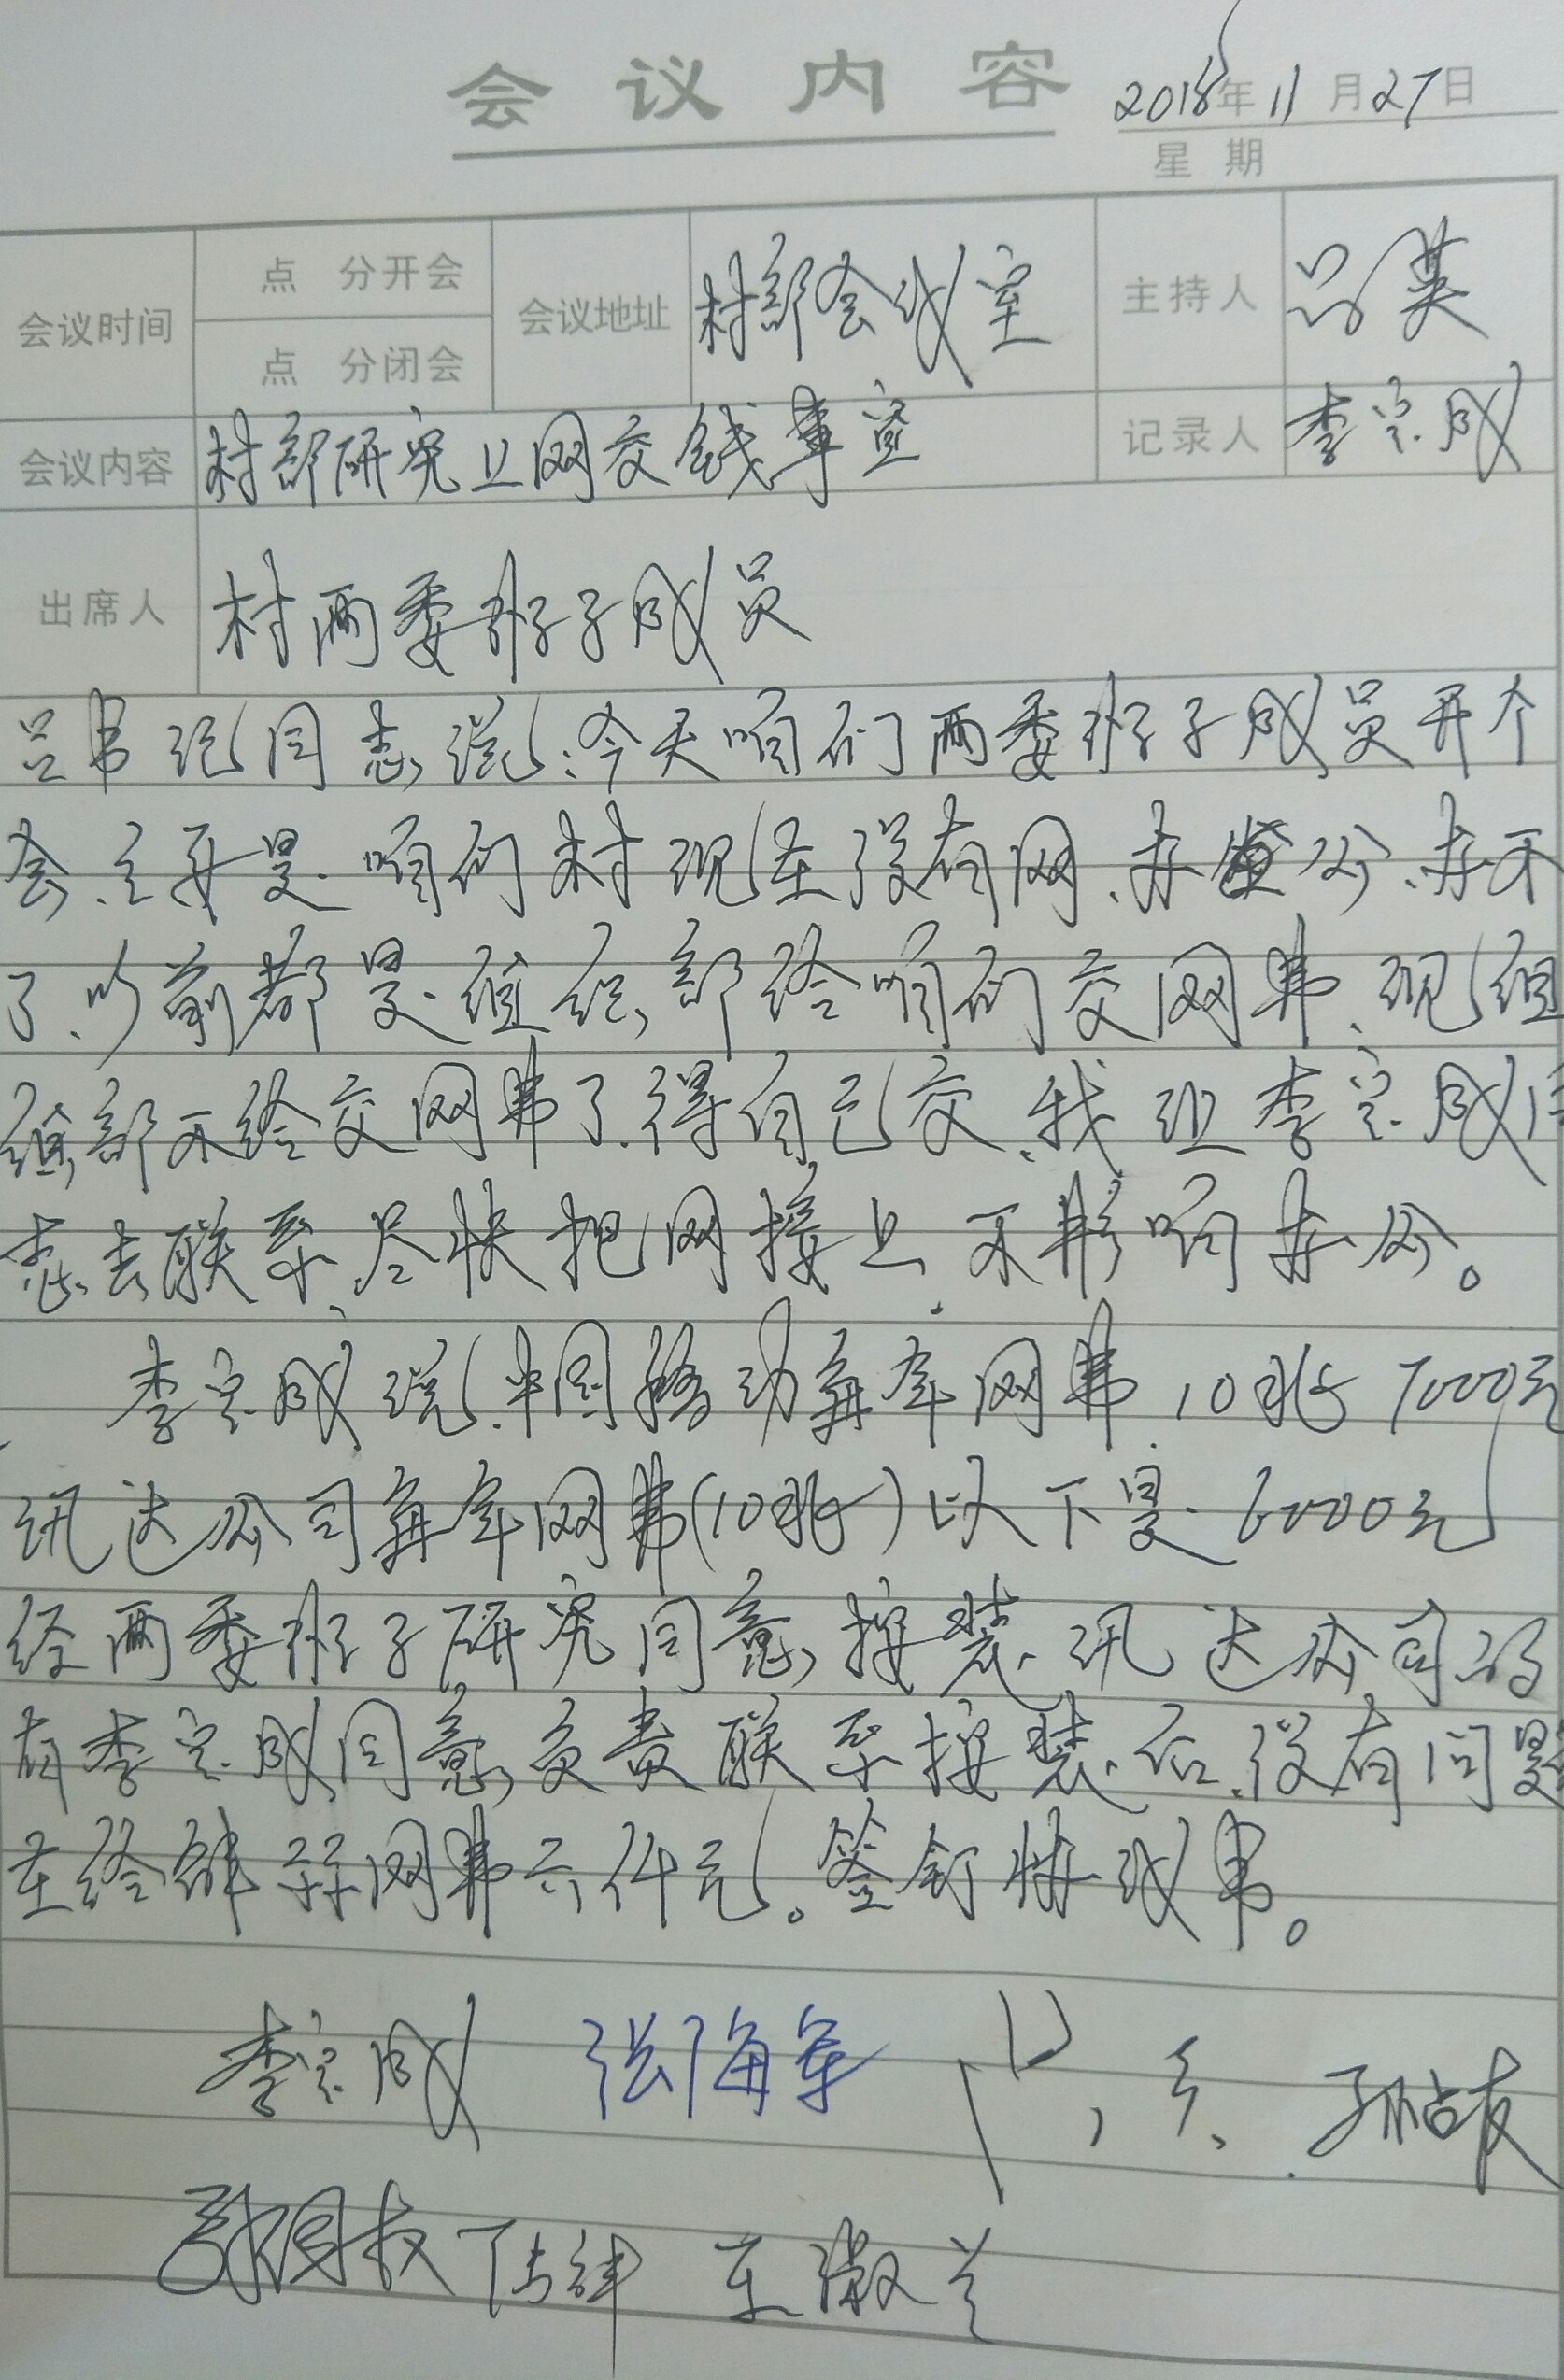 会议内容
2018年11月27日
星期
会议时间 点 分开会 会议地址 村部会议室 主持人 吕英
点 分闭会
会议内容 村部研究上网交钱事宜 记录人 李宗成
出席人 村两委班子成员
吕书记同志说：今天咱们两委班子成员开个
会、主要是咱们村现在没有网、办公、办不
了、以前都是组织部给咱们交网费、现组
织部不给交网费了、得自己交、我让李宗成同
志去联系、尽快把网接上、不影响办公。
李宗成说、中国移动每年网费10兆7000元
讯达公司每年网费(10兆)以下是6000元
经两委班子研究同意、按装讯达公司的
有李宗成同意负责联系按装后、没有问题
在给 网费六仟元。签订协议书。
李宗成 张海军 孙占友
王淑兰